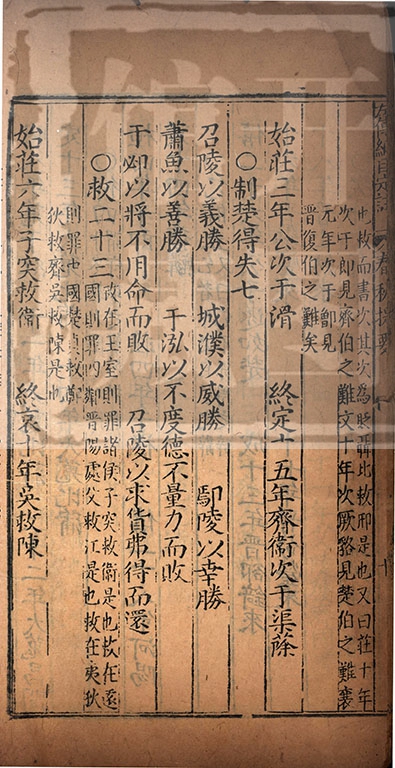 春秋
也救而書次其次為貶聶北救邢是也又曰莊十年
次于郎見齊伯之難文十年次厥貉見楚伯之難襄
元年次于鄫見
晉復伯之難矣
始莊三年公次于滑　終定十五年齊衛次于渠蒢
○制楚得失七
召陵以義勝　城濮以威勝　鄢陵以幸勝
蕭魚以善勝　于泓以不度德不量力而敗
于邲以將不用命而敗　召陵以求貨弗得而還
○救二十三
救在王室則罪諸侯子突救衛是也救在遠
國則罪四鄰晉陽處父救江是也救在夷狄
則罪中國楚貞救鄭
狄救齊吳救陳是也
始莊六年子突救衛　終哀十年吳救陳